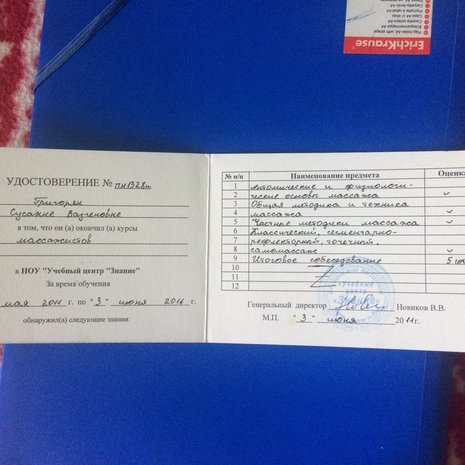 ErichKrause
УДОСТОВЕРЕНИЕ № ПМ1328м
Григорян
Сусанне Вазгеновне
в том, что он (а) окончил (а) курсы
массажистов
в НОУ "Учебный центр "Знание"
За время обучения
мая 2014 г. по "3" июня 2014 г.
обнаружил(а) следующие знания:
№ п/п Наименование предмета Оценка
1 Атомические и физиологи-
2 ческие основы массажа
3 Общая методика и техника
4 массажа
5 Частные методики массажа
6 Классический, сегментарно-
7 рефлекторный, точечный,
8 самомассаж
9 Итоговое собеседование 5
10
11
12
Генеральный директор Новиков В.В.
М.П. "3" июня 2014г.